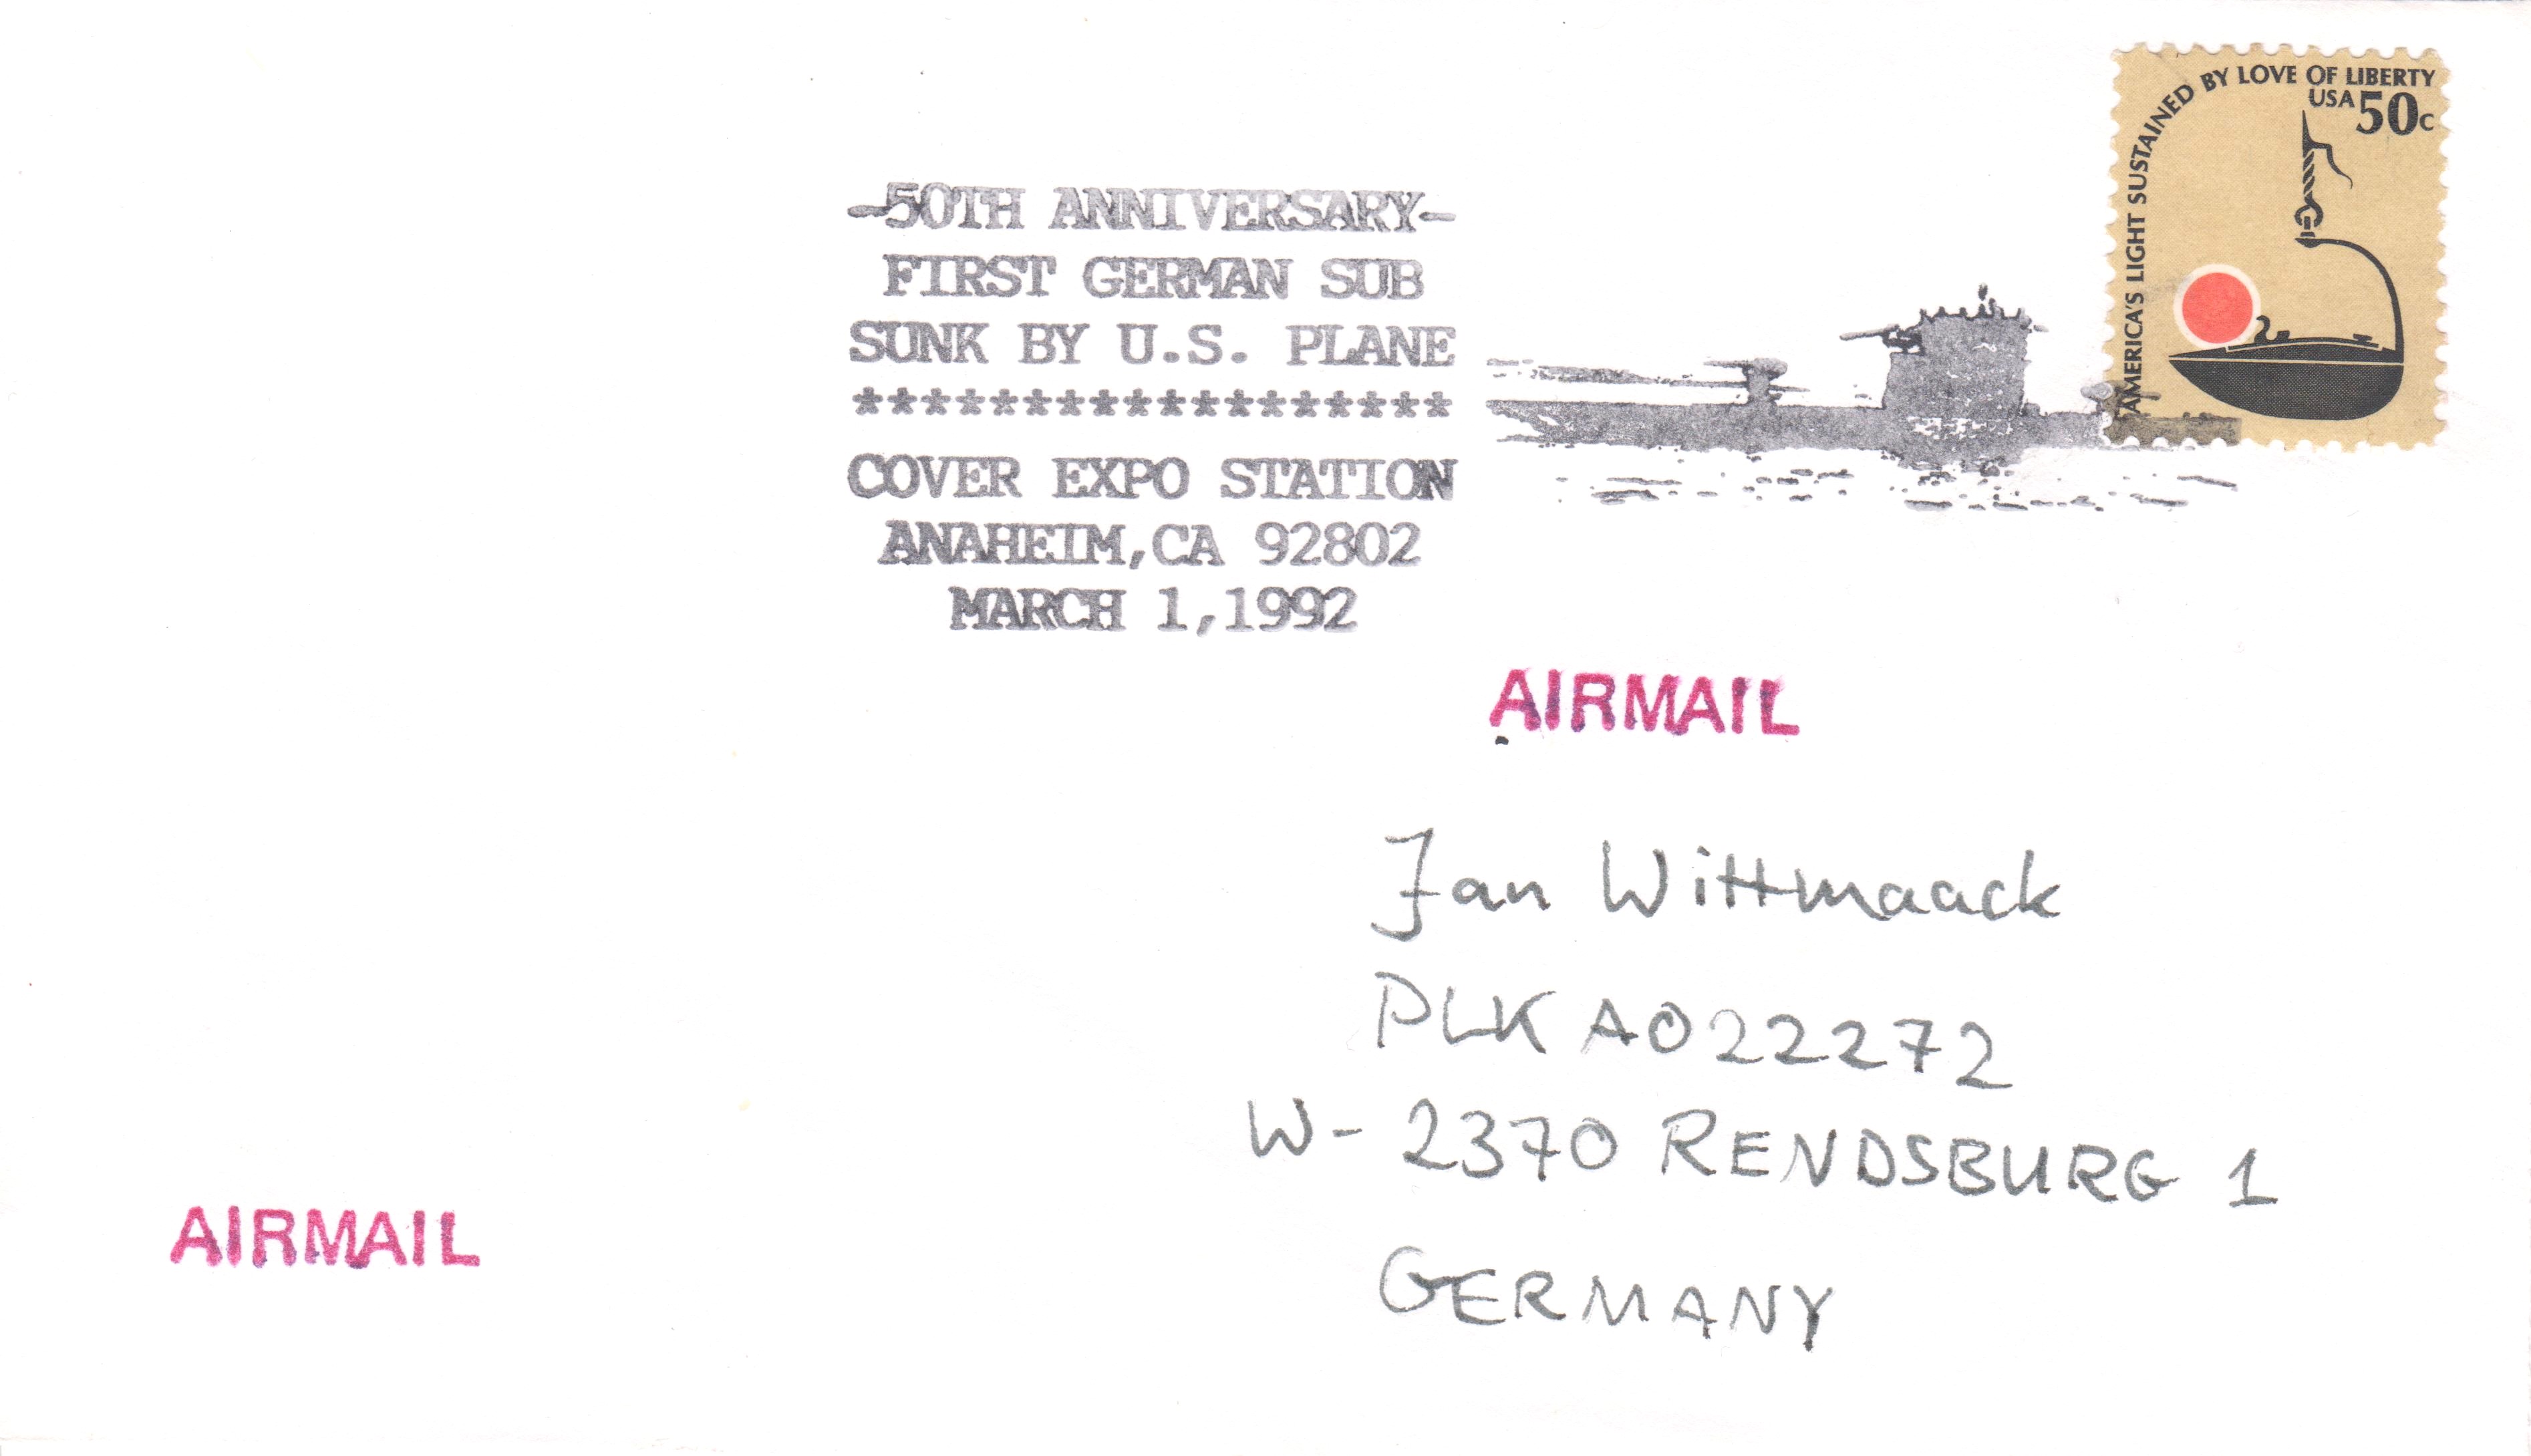 AMERICA'S LIGHT SUSTAINED BY LOVE OF LIBERTY
USA 50c
-50TH ANNIVERSARY-
FIRST GERMAN SUB
SUNK BY U.S. PLANE
******************
COVER EXPO STATION
ANAHEIM,CA 92802
MARCH 1,1992
AIRMAIL
Jan Wittmaack
PLK A022272
W- 2370 RENDSBURG 1
GERMANY
AIRMAIL